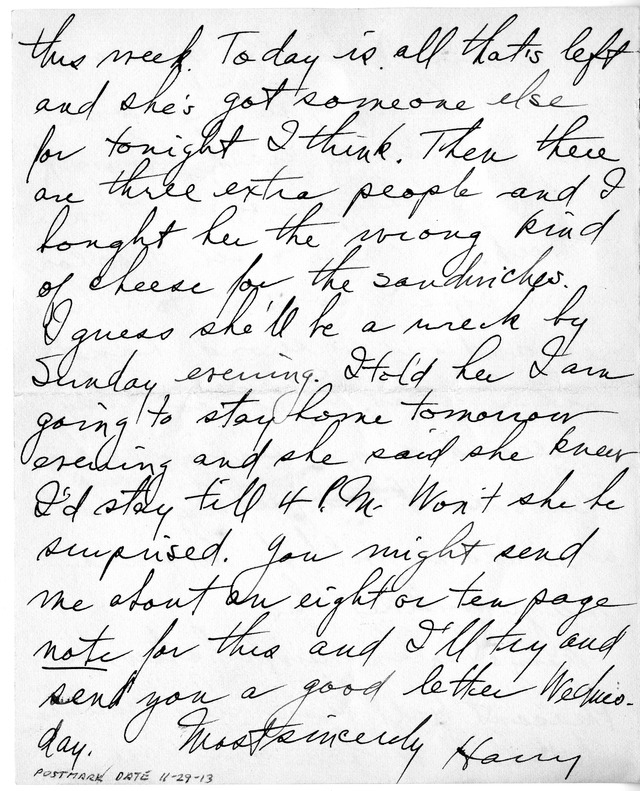 this week. Today is all that's left
and she's got someone else
for tonight I think. Then there
are three extra people and I
bought her the wrong kind
of cheese for the sandwiches.
I guess she'll be a wreck by
Sunday evening. I told her I am
going to stay home tomorrow
evening and she said she knew
I'd stay till 4 P.M. Won't she be
surprised. You might send
me about an eight or ten page
note for this and I'll try and
send you a good letter Wednes-
day. Most sincerely Harry
POSTMARK DATE 11-29-13